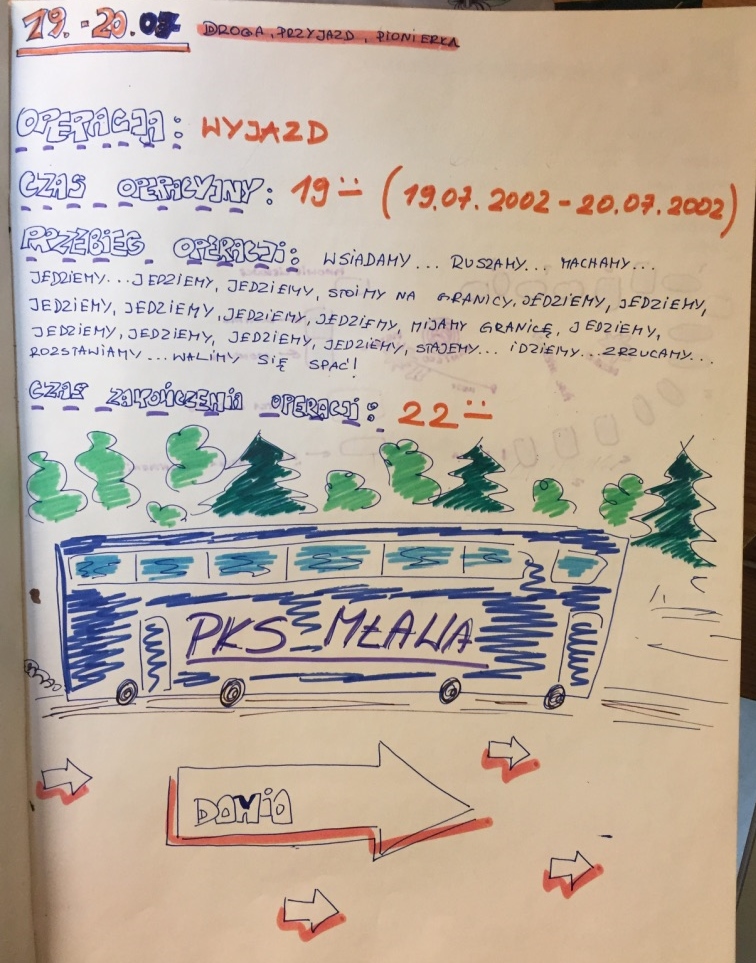 19.-20.07 DROGA, PRZYJAZD, PIONIERKA
OPERACJA: WYJAZD
CZAS OPERACYJNY: 19:= (19.07.2002 - 20.07.2002)
PRZEBIEG OPERACJI: WSIADAMY... RUSZAMY... MACHAMY...
JEDZIEMY...JEDZIEMY, JEDZIEMY, STOIMY NA GRANICY, JEDZIEMY, JEDZIEMY,
JEDZIEMY, JEDZIEMY, JEDZIEMY, JEDZIEMY, MIJAMY GRANICĘ, JEDZIEMY,
JEDZIEMY, JEDZIEMY, JEDZIEMY, JEDZIEMY, STAJEMY... IDZIEMY... ZRZUCAMY...
ROZSTAWIAMY... WALIMY SIĘ SPAĆ!
CZAS ZAKOŃCZENIA OPERACJI: 22:=
PKS MŁAWA
DANIA